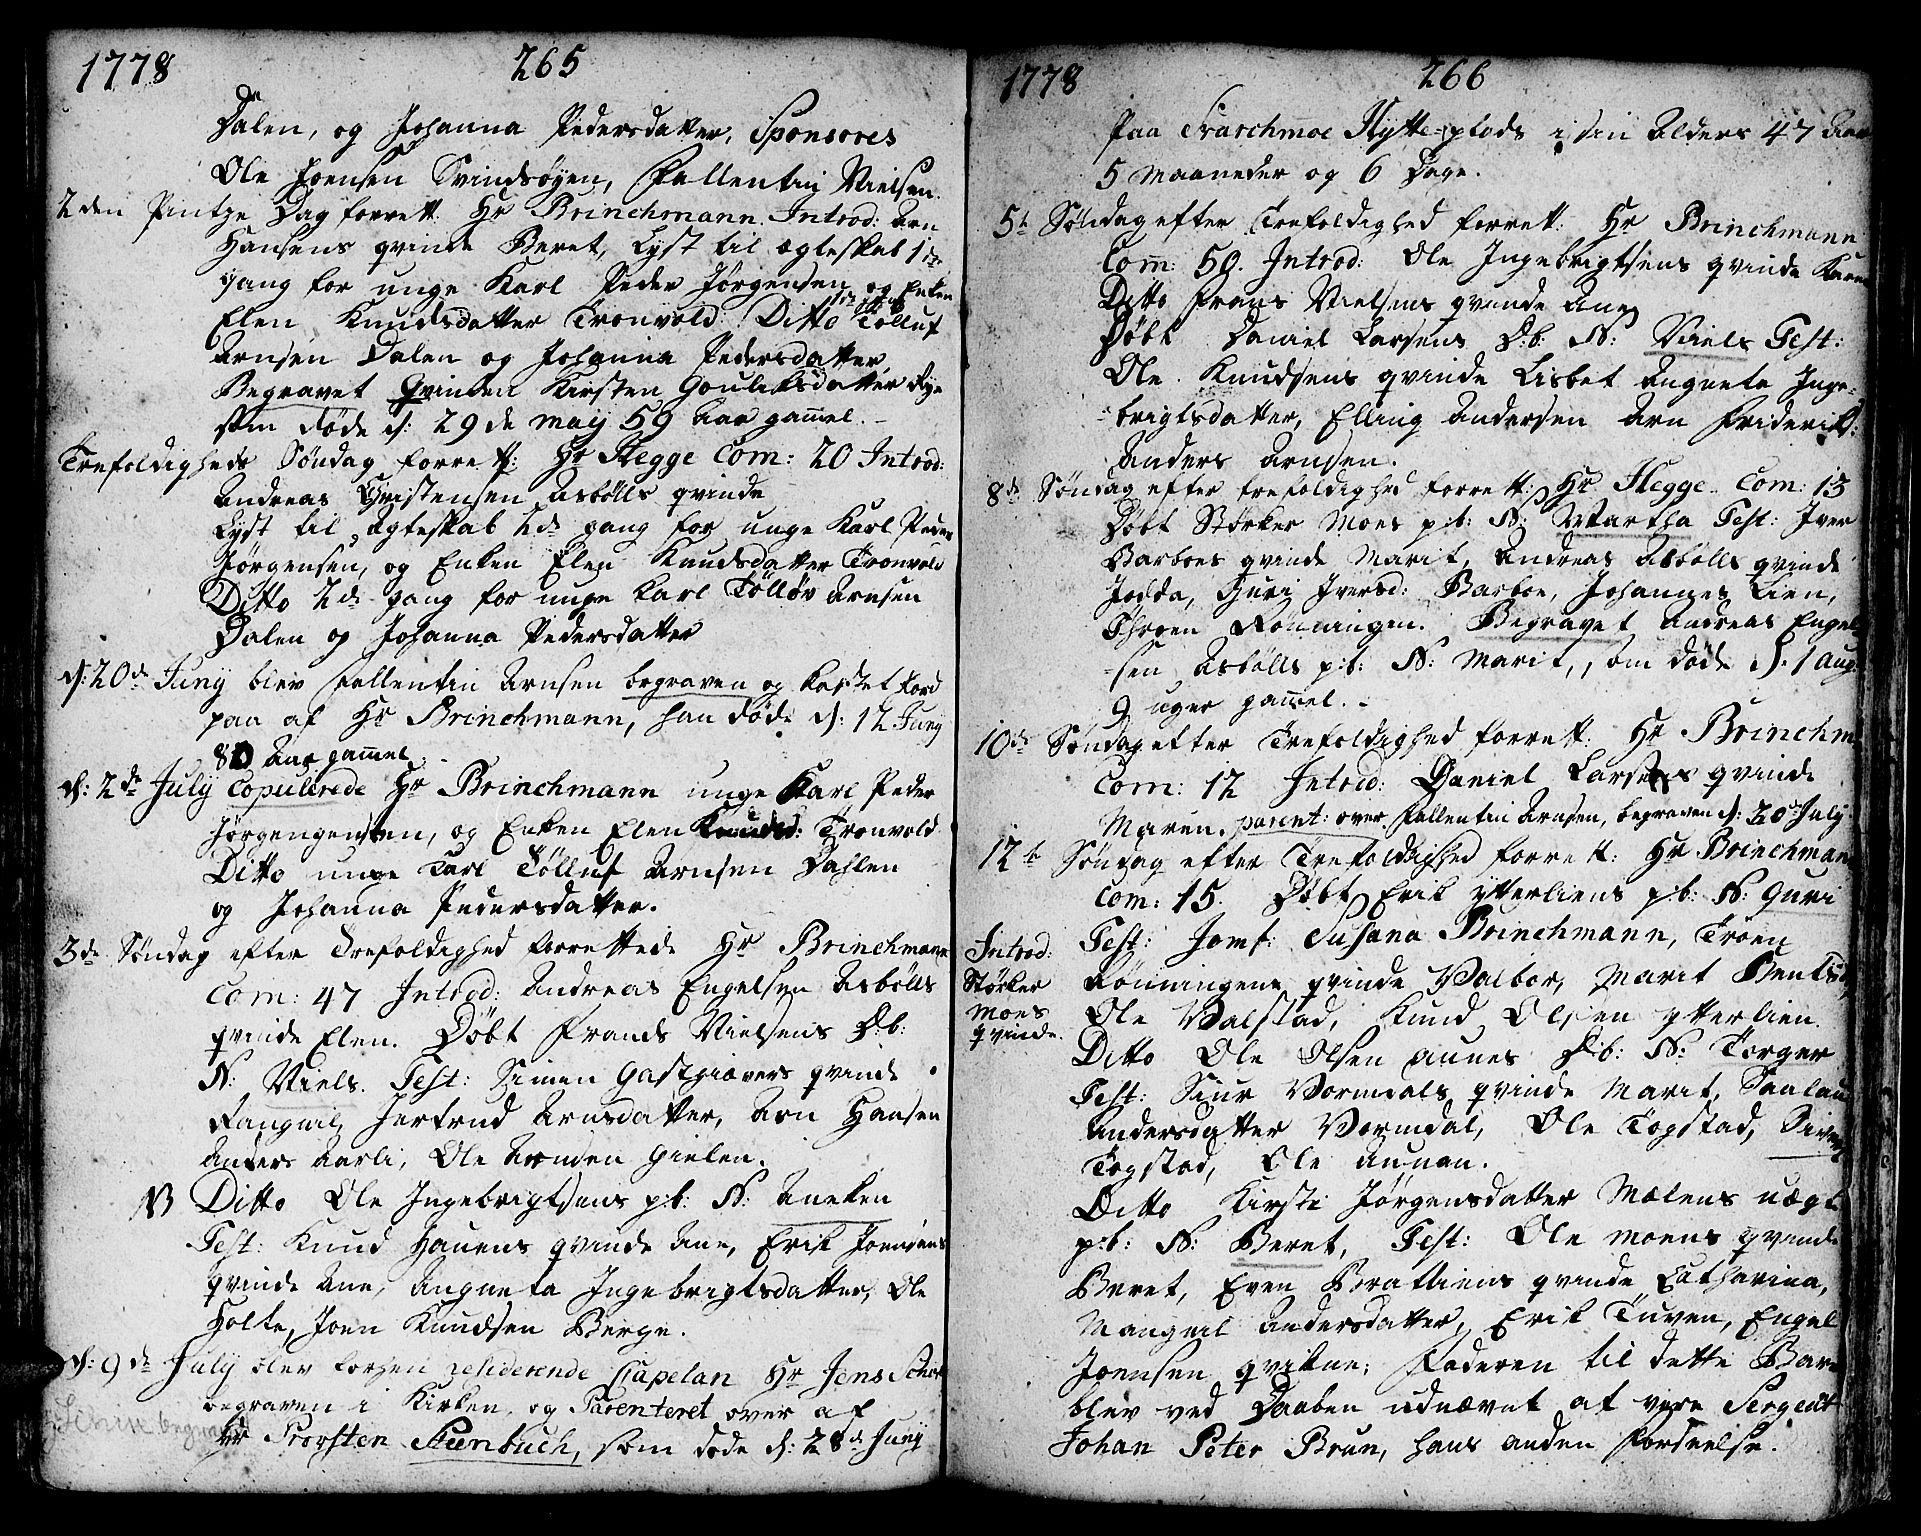 1778 265
Dalen, og Johanna Pedersdatter, Sponsores
Ole Joensen Svindsøyen, Fallentin Nielsen.
2den Pintze Dag forrett: Hr Brinchmann. Introd: Arn
Hansens qvinde Beret, Lyst til ægteskab 1ste
gang for unge Karl Peder Jørgensen og Enken
Elen Knudsdatter Tronvold. Ditto Tølluf
Arnsen Dalen og Johanna Pedersdatter
Begravet Qvinden Kirsten Gouliksdatter
som døde d: 29de may 59 aar gam̄el. -
Trefoldigheds Søndag forrett: Hr Hegge Com: 20 Introd:
Andreas Christensen Asbølls qvinde
Lyst til Ægteskab 2d gang for unge Karl Peder
Jørgensen, og Enken Elen Knudsdatter Tronvold
Ditto 2d gang for unge Karl Tølløv Arnsen
Dalen og Johanna Pedersdatter
d: 20de Junÿ blev Fallentin Arnsen begraven og kastet Jord
paa af Hr Brinchmann, han døde d: 12 Junÿ
80 aar gam̄el
d: 2de Julÿ Copulerede Hr Brinchmann unge Karl Peder
Jørgengensen, og Enken Elen Knudsd: Tronvold
Ditto unge Karl Tølluf Arnsen Dahlen
og Johanna Pedersdatter.
3de Søndag efter Trefoldighed forrettede Hr Brinchmann
Com: 47 Introd: Andreas Engelsen Asbølls
qvinde Elen. Døbt Frands Nielsens D:b:
N: Niels. Test: Simen Gastgiævers qvinde
Rangnil, Jertrud Arnsdatter, Arn Hansen
Anders Aarli, Ole Gielen.
NB Ditto Ole Ingebrigtsens p:b: N: Aneken
Test: Knud Hauens qvinde Ane, Erik Joensens
qvinde Ane, Angneta Ingebrigtsdatter, Ole
Holte, Joen Knudsen Berge.
d: 9de Julÿ blev forhen residerende Capelan Hr Jens
begraven i Kirken, og Parenteret over af
Hr Thorsten Steenbuch, som døde d: 28d Junÿ
1778 266
paa Hytte-plads i sin Alders 47 Aar
5 Maaneder og 6 Dage.
5t Søndag efter Trefoldighed forrett: Hr Brinchmann
Com̄: 50. Introd: Ole Ingebrigtsens qvinde Karen
Ditto Frans Nielsens qvinde Ane
Døbt Daniel Larsens D:b: N: Niels Test:
Ole Knudsens qvinde Lisbet Angneta Inge-
brigtsdatter, Elling Andersen Arn Friderik:
Anders Arnsen.
8de Søndag efter trefoldighed forrett: Hr Hegge Com: 13
Døbt Størker Moes p:b: N: Martha Test: Iver
Barboes qvinde Marit, Andreas Asbølls qvinde
Jodda, Guri Iversd: Barboe, Johannes Lien,
Throen Rønningen. Begravet Andreas Engel-
sen Asbølls p:b: N: Marit, som døde d: 1 Aug:
9 uger gam̄el. -
10de Søndag efter Trefoldighed forrett: Hr Brinchm
Com: 12 Introd: Daniel Larsens qvinde
Maren. parent: over Fallentin Arnsen, begraven d: 20de July
12te Søndag efter Trefoldighed forrett: Hr Brinchman
Com: 15. Døbt Erik Ytterliens p:b: N: Guri
Test: Jomf: Susana Brinchmann, Troen
Rønningens qvinde Valbor, Marit Bentsd
Introd:
Størker
Moes
qvinde.
Ole Valstad, Knud Olsen Ytterlien.
Ditto Ole Olsen Aunes D:b: N: Torger
Test: Siur Vormdals qvinde Marit,
Andersdatter Vormdal, Ole Togstad, Siver
Togstad, Ole Aunan.
Ditto Kirsti Jørgensdatter Mælens uægte
p:b: N: Beret, Test: Ole Moens qvinde
Beret, Even Bratliens qvinde Catharina,
Mangnil Andersdatter, Erik Tuven, Engel
Joensen qvikne; Faderen til dette Barn
blev ved Daaben udnævnt at være Sergent
Johan Peter Brun, hans anden forseelse.